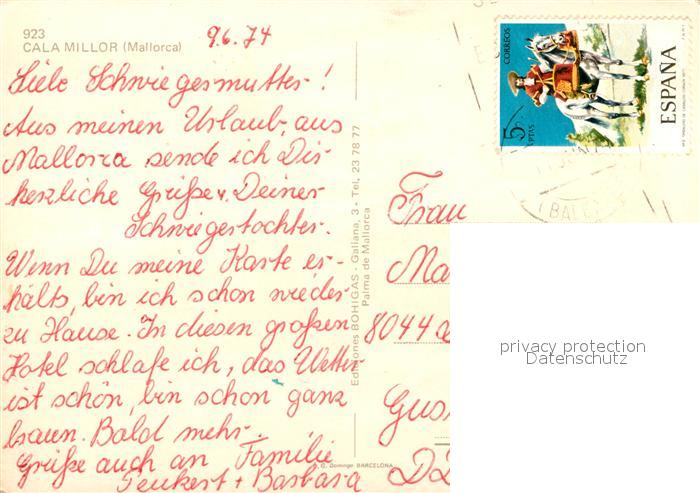 923
CALA MILLOR (Mallorca)
9.6.74
Liebe Schwiegermutter!
Aus meinen Urlaub, aus
Mallorca sende ich Dir
herzliche Grüße v. Deiner
Schwiegertochter.
Wenn Du meine Karte er-
hälts, bin ich schon wieder
zu Hause. In diesen großen
Hotel schlafe ich, das Wetter
ist schön, bin schon ganz
braun. Bald mehr.
Grüße auch an Familie
Penkert + Barbara
Ediciones BOHIGAS - Galiana, 3 - Tel. 23 78 77
Palma de Mallorca
A. G. Domingo BARCELONA
CORREOS
5
PTAS
ESPAÑA
(BALE
Frau
Ma
8044
Gus
DD
privacy protection
Datenschutz